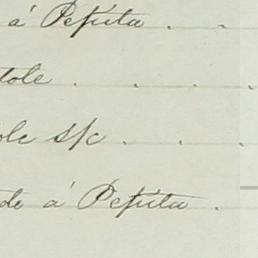 á Pepita . .
tole . . . .
ole s/c . . .
de á Pepita .